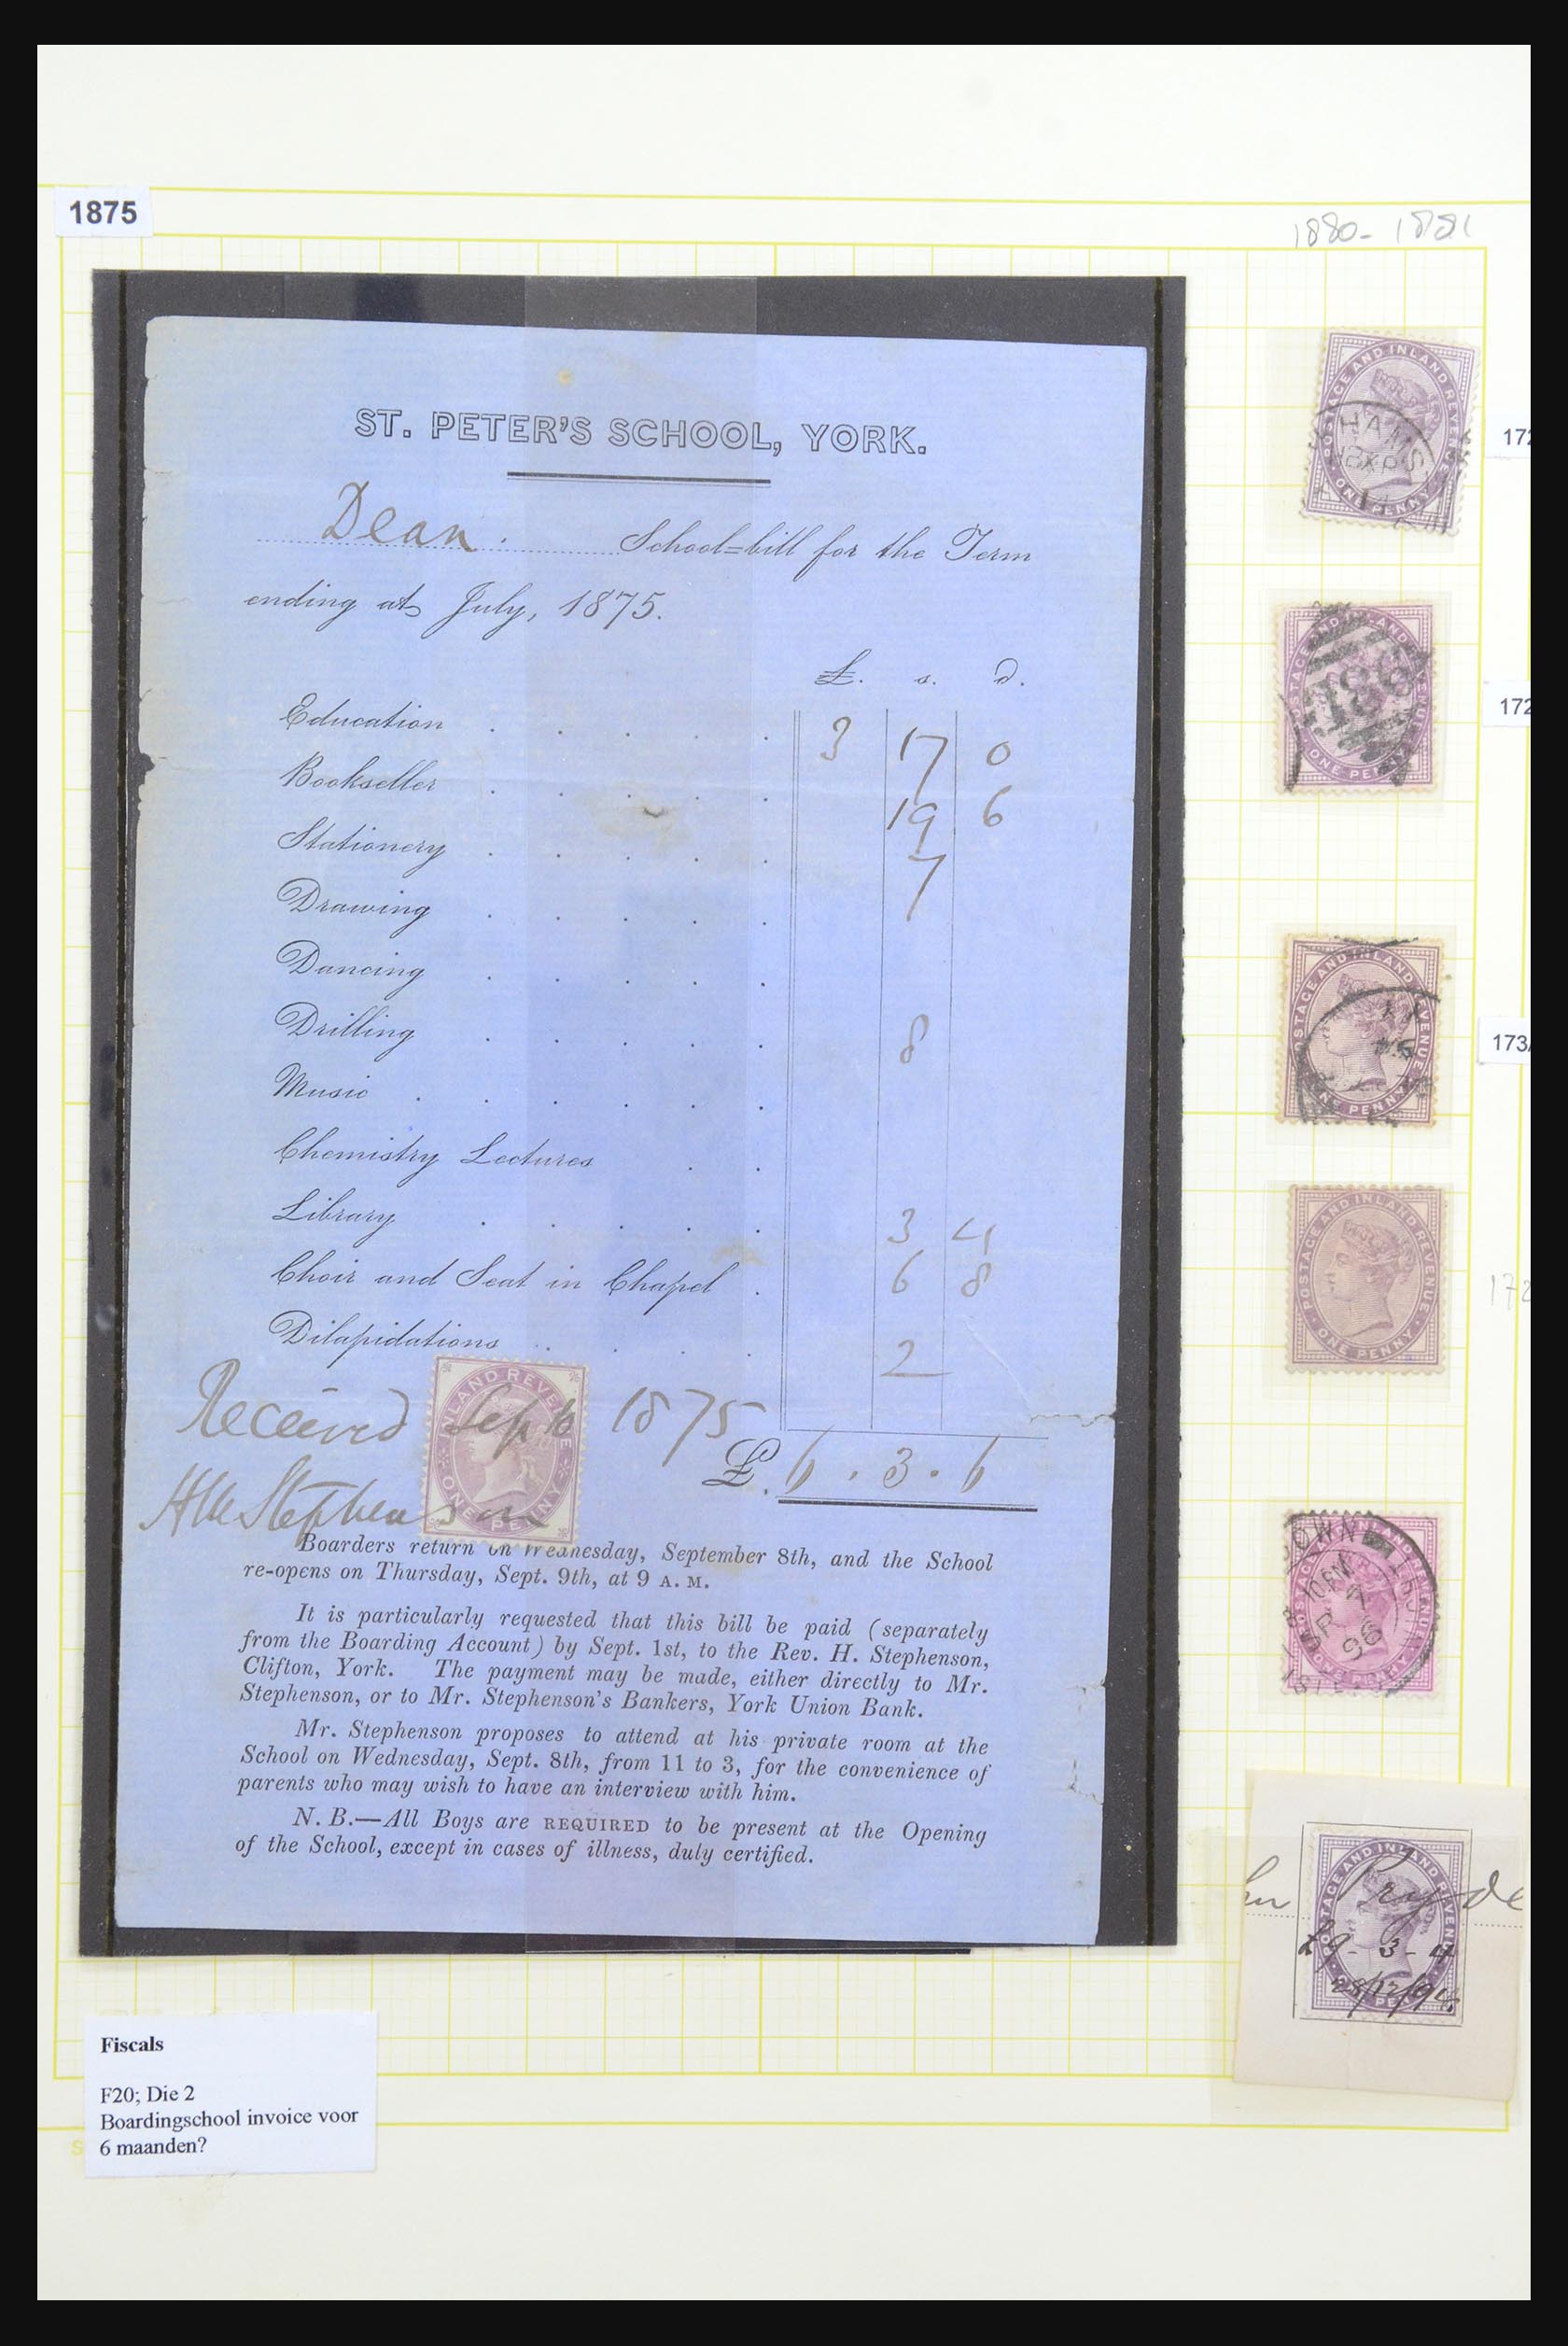 1875
1880-1881
ST. PETER'S SCHOOL, YORK.
Dean. School=bill for the Term
ending at July, 1875.
£. s. d.
Education . . . . . 3 17 0
Bookseller . . . . . 19 6
Stationery . . . . . 7
Drawing . . . . .
Dancing . . . . .
Drilling . . . . . 8
Music . . . . . .
Chemistry Lectures . .
Library . . . . . 3 4
Choir and Seat in Chapel . 6 8
Dilapidations . . . . 2
Received Sep 10 1875
£. 6 . 3 . 6
Stephenson
INLAND REVENUE
ONE PENNY
Boarders return on Wednesday, September 8th, and the School
re-opens on Thursday, Sept. 9th, at 9 A.M.
It is particularly requested that this bill be paid (separately
from the Boarding Account) by Sept. 1st, to the Rev. H. Stephenson,
Clifton, York. The payment may be made, either directly to Mr.
Stephenson, or to Mr. Stephenson's Bankers, York Union Bank.
Mr. Stephenson proposes to attend at his private room at the
School on Wednesday, Sept. 8th, from 11 to 3, for the convenience of
parents who may wish to have an interview with him.
N.B.—All Boys are REQUIRED to be present at the Opening
of the School, except in cases of illness, duly certified.
Fiscals
F20; Die 2
Boardingschool invoice voor
6 maanden?
POSTAGE AND INLAND REVENUE
HAMS
ONE PENNY
172
188
172
POSTAGE AND INLAND REVENUE
ONE PENNY
173/
POSTAGE AND INLAND REVENUE
ONE PENNY
172
OWN
10 PM
SP 7
96
POSTAGE AND INLAND REVENUE
Pryde
£9-3-4